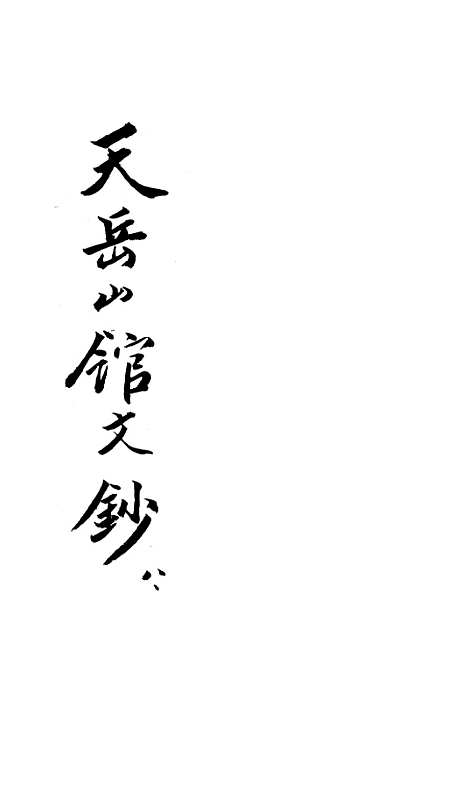 天岳山館文鈔 八